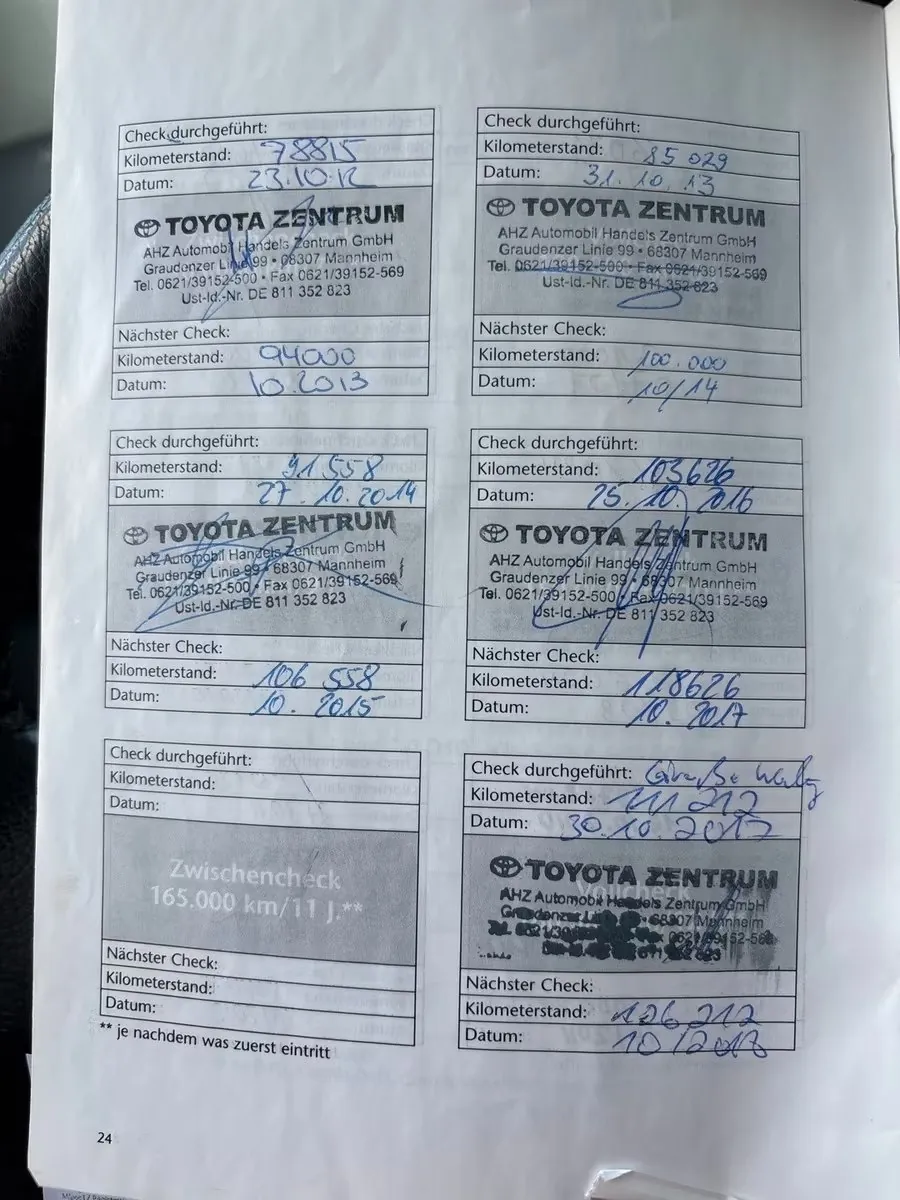 Check durchgeführt:
Kilometerstand: 78815
Datum: 23.10.12
TOYOTA ZENTRUM
AHZ Automobil Handels Zentrum GmbH
Graudenzer Linie 99 • 68307 Mannheim
Tel. 0621/39152-500 • Fax 0621/39152-569
Ust-Id.-Nr. DE 811 352 823
Nächster Check:
Kilometerstand: 94000
Datum: 10.2013
Check durchgeführt:
Kilometerstand: 85 029
Datum: 31. 10. 13
TOYOTA ZENTRUM
AHZ Automobil Handels Zentrum GmbH
Graudenzer Linie 99 • 68307 Mannheim
Tel. 0621/39152-500 • Fax 0621/39152-569
Ust-Id.-Nr. DE 811 352 823
Nächster Check:
Kilometerstand: 100.000
Datum: 10/14
Check durchgeführt:
Kilometerstand: 91 558
Datum: 27. 10. 2014
TOYOTA ZENTRUM
AHZ Automobil Handels Zentrum GmbH
Graudenzer Linie 99 • 68307 Mannheim
Tel. 0621/39152-500 • Fax 0621/39152-569
Ust-Id.-Nr. DE 811 352 823
Nächster Check:
Kilometerstand: 106 558
Datum: 10. 2015
Check durchgeführt:
Kilometerstand: 103626
Datum: 25. 10. 2016
TOYOTA ZENTRUM
AHZ Automobil Handels Zentrum GmbH
Graudenzer Linie 99 • 68307 Mannheim
Tel. 0621/39152-500 • Fax 0621/39152-569
Ust-Id.-Nr. DE 811 352 823
Nächster Check:
Kilometerstand: 118626
Datum: 10. 2017
Check durchgeführt:
Kilometerstand:
Datum:
Zwischencheck
165.000 km/11 J.**
Nächster Check:
Kilometerstand:
Datum:
** je nachdem was zuerst eintritt
Check durchgeführt:
Kilometerstand: 111 212
Datum: 30.10.2017
Vollcheck
TOYOTA ZENTRUM
AHZ Automobil Handels Zentrum GmbH
Graudenzer • 68307 Mannheim
Nächster Check:
Kilometerstand: 126 212
Datum: 10/2018
24